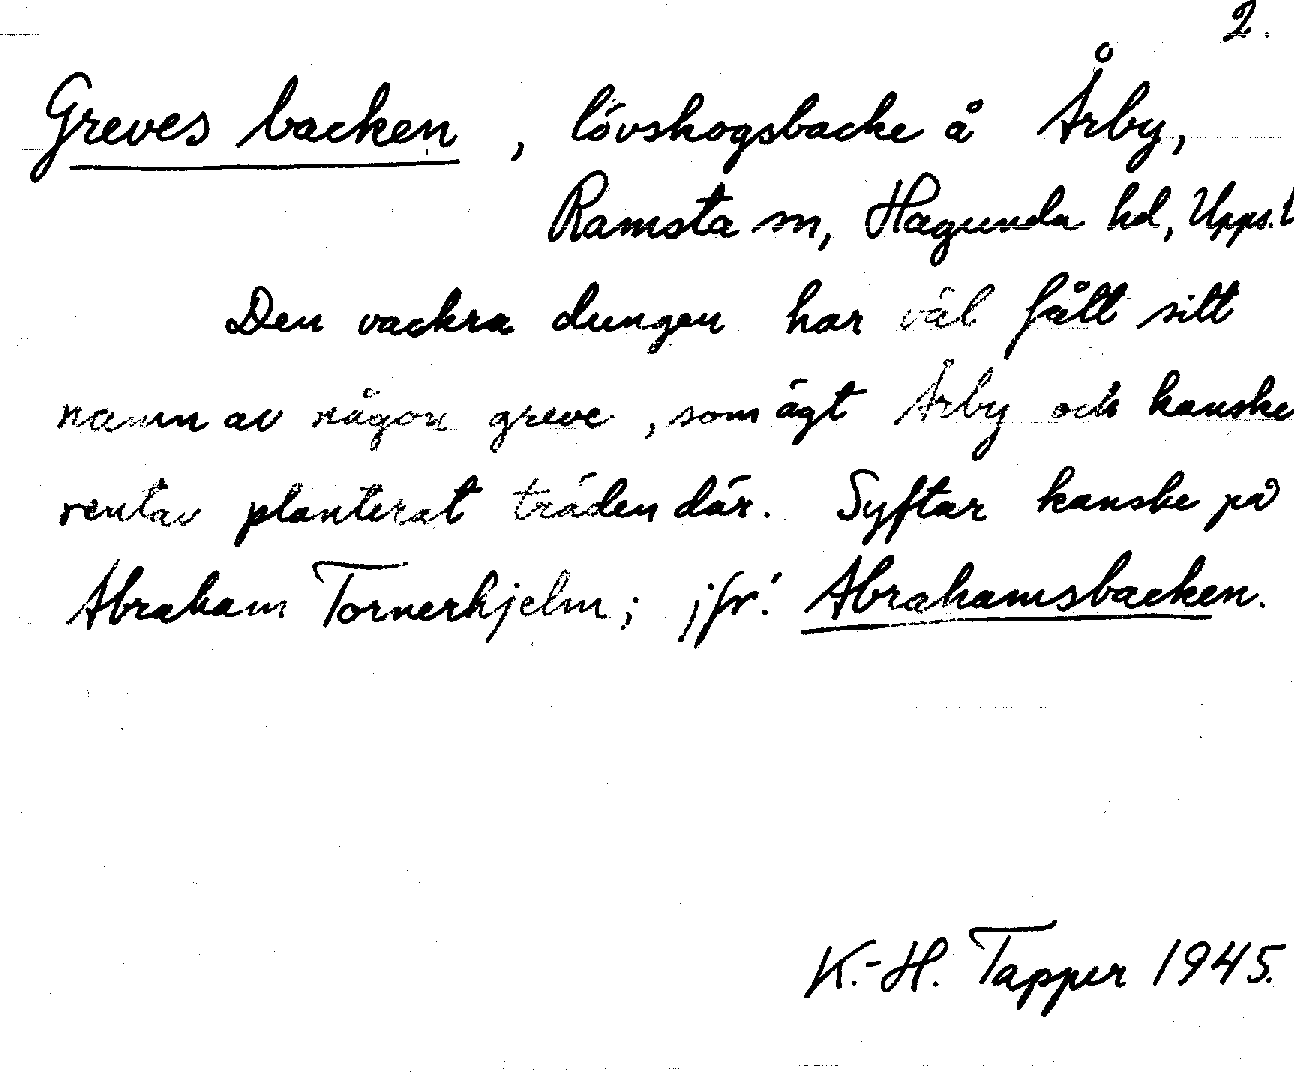 2.
Greves backen, lövskogsbacke å Årby,
Ramsta sn, Hagunda hd, Upps. l
Den vackra dungen har väl fått sitt
namn av någon greve, som ägt Årby och kanske
rentav planterat träden där. Syftar kanske på
Abraham Tornerhjelm; jfr. Abrahamsbacken.
K.-H. Tapper 1945.